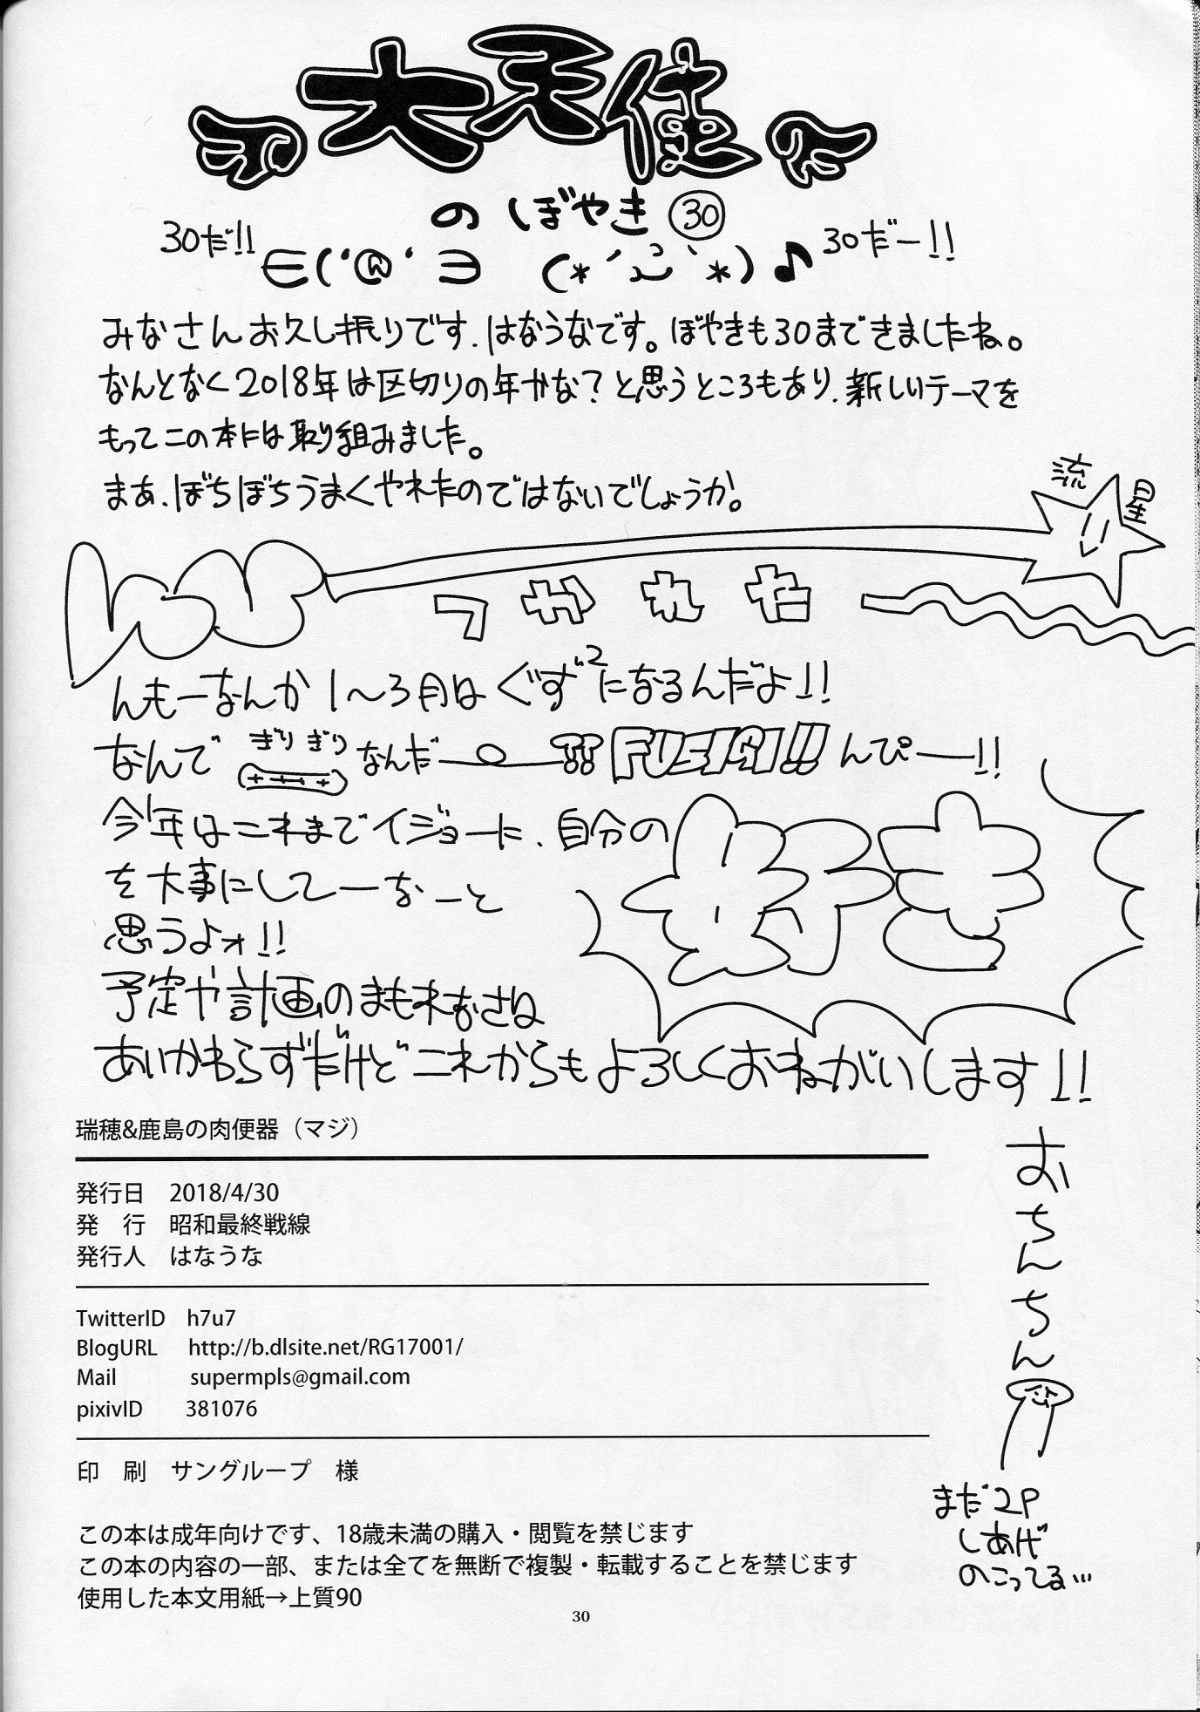 大天使
のぼやき㉚
30だ!! ∈('@'∋ (*´ω`*)♪ 30だー!!
みなさんお久し振りです.はなうなです。ぼやきも30まできましたね。
なんとなく2018年は区切りの年かな?と思うところもあり.新しいテーマを
もってこの本には取り組みました。
まあ.ぼちぼちうまくやれたのではないでしょうか。
流星
つかれた
んもーなんか1〜3月はぐず²になるんだよ!!
なんでぎりぎりなんだー!! FUSIGI!! んぴー!!
今年はこれまでイジョーに.自分の好き
を大事にしてーなーと
思うよォ!!
予定や計画のまもれなさね
あいかわらずだけどこれからもよろしくおねがいします!!
瑞穂&鹿島の肉便器(マジ)
発行日 2018/4/30
発 行 昭和最終戦線
発行人 はなうな
TwitterID h7u7
BlogURL http://b.dlsite.net/RG17001/
Mail supermpls@gmail.com
pixivID 381076
印 刷 サングループ 様
この本は成年向けです、18歳未満の購入・閲覧を禁じます
この本の内容の一部、または全てを無断で複製・転載することを禁じます
使用した本文用紙→上質90
おちんちん
まだ2P
しあげ
のこってる…
30